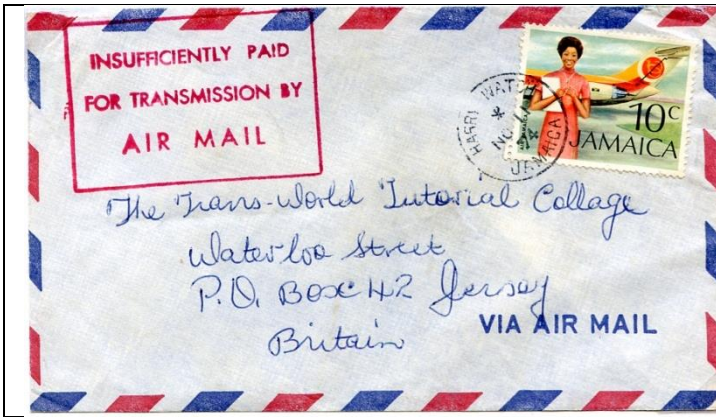 INSUFFICIENTLY PAID
FOR TRANSMISSION BY
AIR MAIL
10c
JAMAICA
HARRY WATCH
NO
JAMAICA
The Trans-World Tutorial Collage
Waterloo Street
P.O. Box 42 Jersey
Britain
VIA AIR MAIL